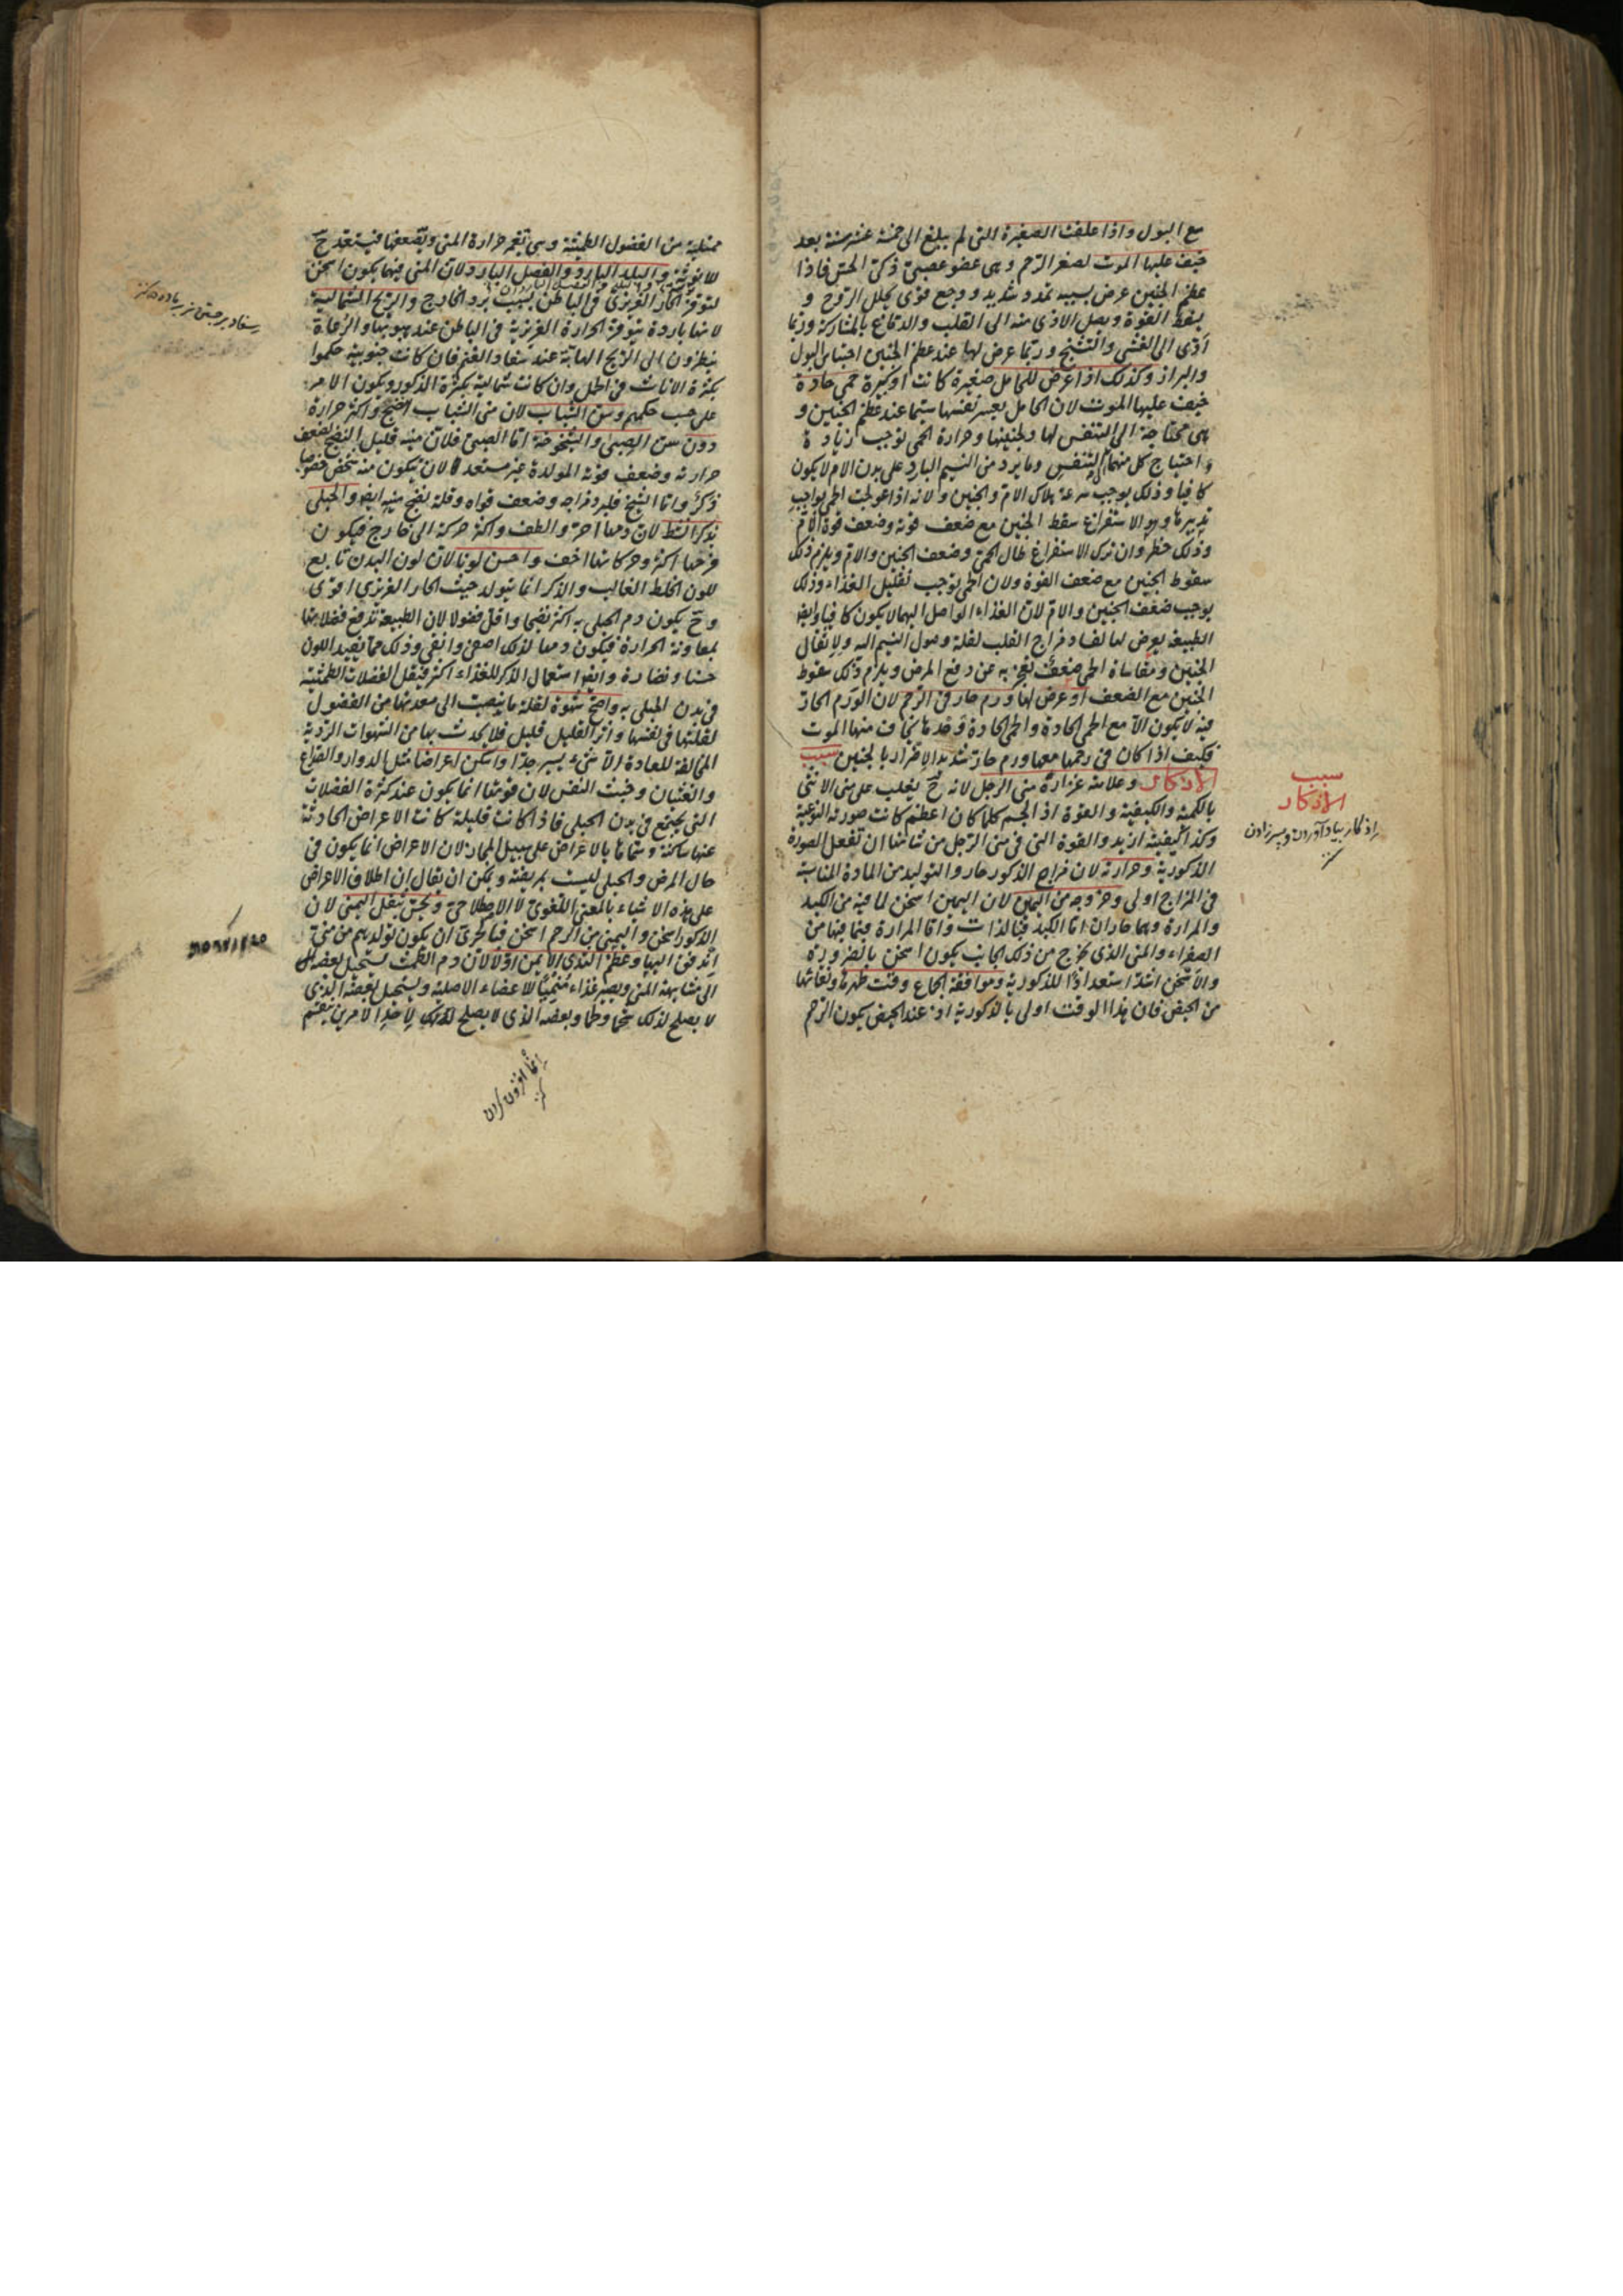 مع البول واذا علقت الصغيرة التى لم يبلغ الى خمسة عشر سنة بعد
خيف عليها الموت لصغر الرحم وهى عضو عصبى ذكى الحس فاذا
عظم الجنين عرض بسببه تمدد شديد ووجع قوى يحلل الروح و
يسقط القوة ويصل الاذى منه الى القلب والدماغ بالمشاركة وربما
ادى الى الغشى والتشنج وربما عرض لها عند عظم الجنين احتباس البول
والبراز وكذلك اذا عرض للحامل صغيرة كانت او كبيرة حمى حادة
خيف عليها الموت لان الحامل يعسر نفسها سيما عند عظم الجنين و
هى محتاجة الى التنفس لها ولجنينها وحرارة الحمى توجب زيادة
احتياج كل منهما الى التنفس وما يرد من النسيم البارد على بدن الام لا يكون
كافيا وذلك يوجب سرعة هلاك الام والجنين ولانه اذا عولجت الحمى بواجب
تدبيرها وهو الاستفراغ سقط الجنين مع ضعف قوته وضعف قوة الام
وذلك خطر وان ترك الاستفراغ طال الحمى وضعف الجنين والام ويلزم ذلك
سقوط الجنين مع ضعف القوة ولان الحمى توجب تقليل الغذاء وذلك
يوجب ضعف الجنين والام لان الغذاء الواصل اليهما لا يكون كافيا وايضا
الطبيعة يعرض لها لفساد مزاج القلب لقلة وصول النسيم اليه ولاثقال
الجنين ومقاساة الحمى ضعف تعجز به عن دفع المرض ويلزم ذلك سقوط
الجنين مع الضعف او عرض لها ورم حار فى الرحم لان الورم الحار
فيه لا يكون الا مع الحمى الحادة والحمى الحادة وحدها يخاف منها الموت
فكيف اذا كان فى رحمها معها ورم حار شديد الاضرار بالجنين سبب
الاذكار وعلامته غزارة منى الرجل لانه ح يغلب على منى الانثى
بالكمية والكيفية والقوة اذ الجسم كلما كان اعظم كانت صورته النوعية
وكذا كيفيته ازيد والقوة التى فى منى الرجل من شانها ان تفعل الصورة
الذكورية وحرارته لان مزاج الذكور حار والتوليد من المادة المناسبة
فى المزاج اولى وخروجه من اليمين لان اليمين اسخن لما فيه من الكبد
والمرارة وهما حاران اما الكبد فبالذات واما المرارة فبما فيها من
الصفراء والمنى الذى يخرج من ذلك الجانب يكون اسخن بالضرورة
والاسخن اشد استعدادا للذكورية وموافقة الجماع وقت طهرها ونقائها
من الحيض فان هذا الوقت اولى بالذكورية اذ عند الحيض يكون الرحم
سبب
الاذكار
اذكار بياد آوردن و پسر زادن
ممتلية من الفضول الطمثية وهى تغمر حرارة المنى وتضعفها فيستعد ح
للانوثية والبلد البارد والفصل البارد لان المنى فيهما يكون اسخن
لتوفر الحار الغريزى فى الباطن بسبب برد الخارج والريح الشمالية
لانها باردة يتوفر الحرارة الغريزية فى الباطن عند هبوبها والرعاة
ينظرون الى الريح الهابة عند سفاد الغنم فان كانت جنوبية حكموا
بكثرة الاناث فى الحمل وان كانت شمالية بكثرة الذكور ويكون الامر
على حسب حكمهم وسن الشباب لان منى الشباب انضج واكثر حرارة
دون سن الصبى والشيخوخة اما الصبى فلان منيه قليل النضج لضعف
حرارته وضعف قوته المولدة غير مستعد لان يكون منه شخص خصوصا
ذكر واما الشيخ فلبرد مزاجه وضعف قواه وقلة نضج منيه ايضا والحبلى
بذكر انشط لان دمها احر والطف واكثر حركة الى خارج فيكون
فرحها اكثر وحركاتها اخف واحسن لونا لان لون البدن تابع
للون الخلط الغالب والذكر انما يتولد حيث الحار الغريزى اقوى
وح يكون دم الحبلى به اكثر نضجا واقل فضولا لان الطبيعة تدفع فضلاتها
بمعاونة الحرارة فيكون دمها لذلك اصفى وانقى وذلك مما يفيد اللون
حسنا ونضارة وايضا استعمال الذكر للغذاء اكثر فتقل الفضلات الطمثية
فى بدن الحبلى به واصح شهوة لقلة ما ينصب الى معدتها من الفضول
لقلتها فى نفسها واثر القليل قليل فلا يحدث بها من الشهوات الردية
المخالفة للعادة الا شىء يسير جدا واسكن اعراضا مثل الدوار والصداع
والغثيان وخبث النفس لان حدوثها انما يكون عند كثرة الفضلات
التى يجتمع فى بدن الحبلى فاذا كانت قليلة كانت الاعراض الحادثة
عنها ساكنة وسماها بالاعراض على سبيل المجاز لان الاعراض انما يكون فى
حال المرض والحبلى ليست بمريضة ويمكن ان يقال ان اطلاق الاعراض
على هذه الاشياء بالمعنى اللغوى لا الاصطلاحى وتحس بثقل اليمنى لان
الذكور اسخن واليمنى من الرحم اسخن فبالحرى ان يكون تولدهم من منى
اندفق اليها وعظم الثدى الايمن اولا لان دم الطمث يستحيل بعضه
الى مشابهة المنى ويصير غذاء منميا للاعضاء الاصلية ويستحيل بعضه الذى
لا يصلح لذلك شحما ولحما وبعضه الذى لا يصلح لذلك لاحد الامرين ينقسم
سفاد برجستن نر بر ماده كنز
انما افزون كردن
كنز